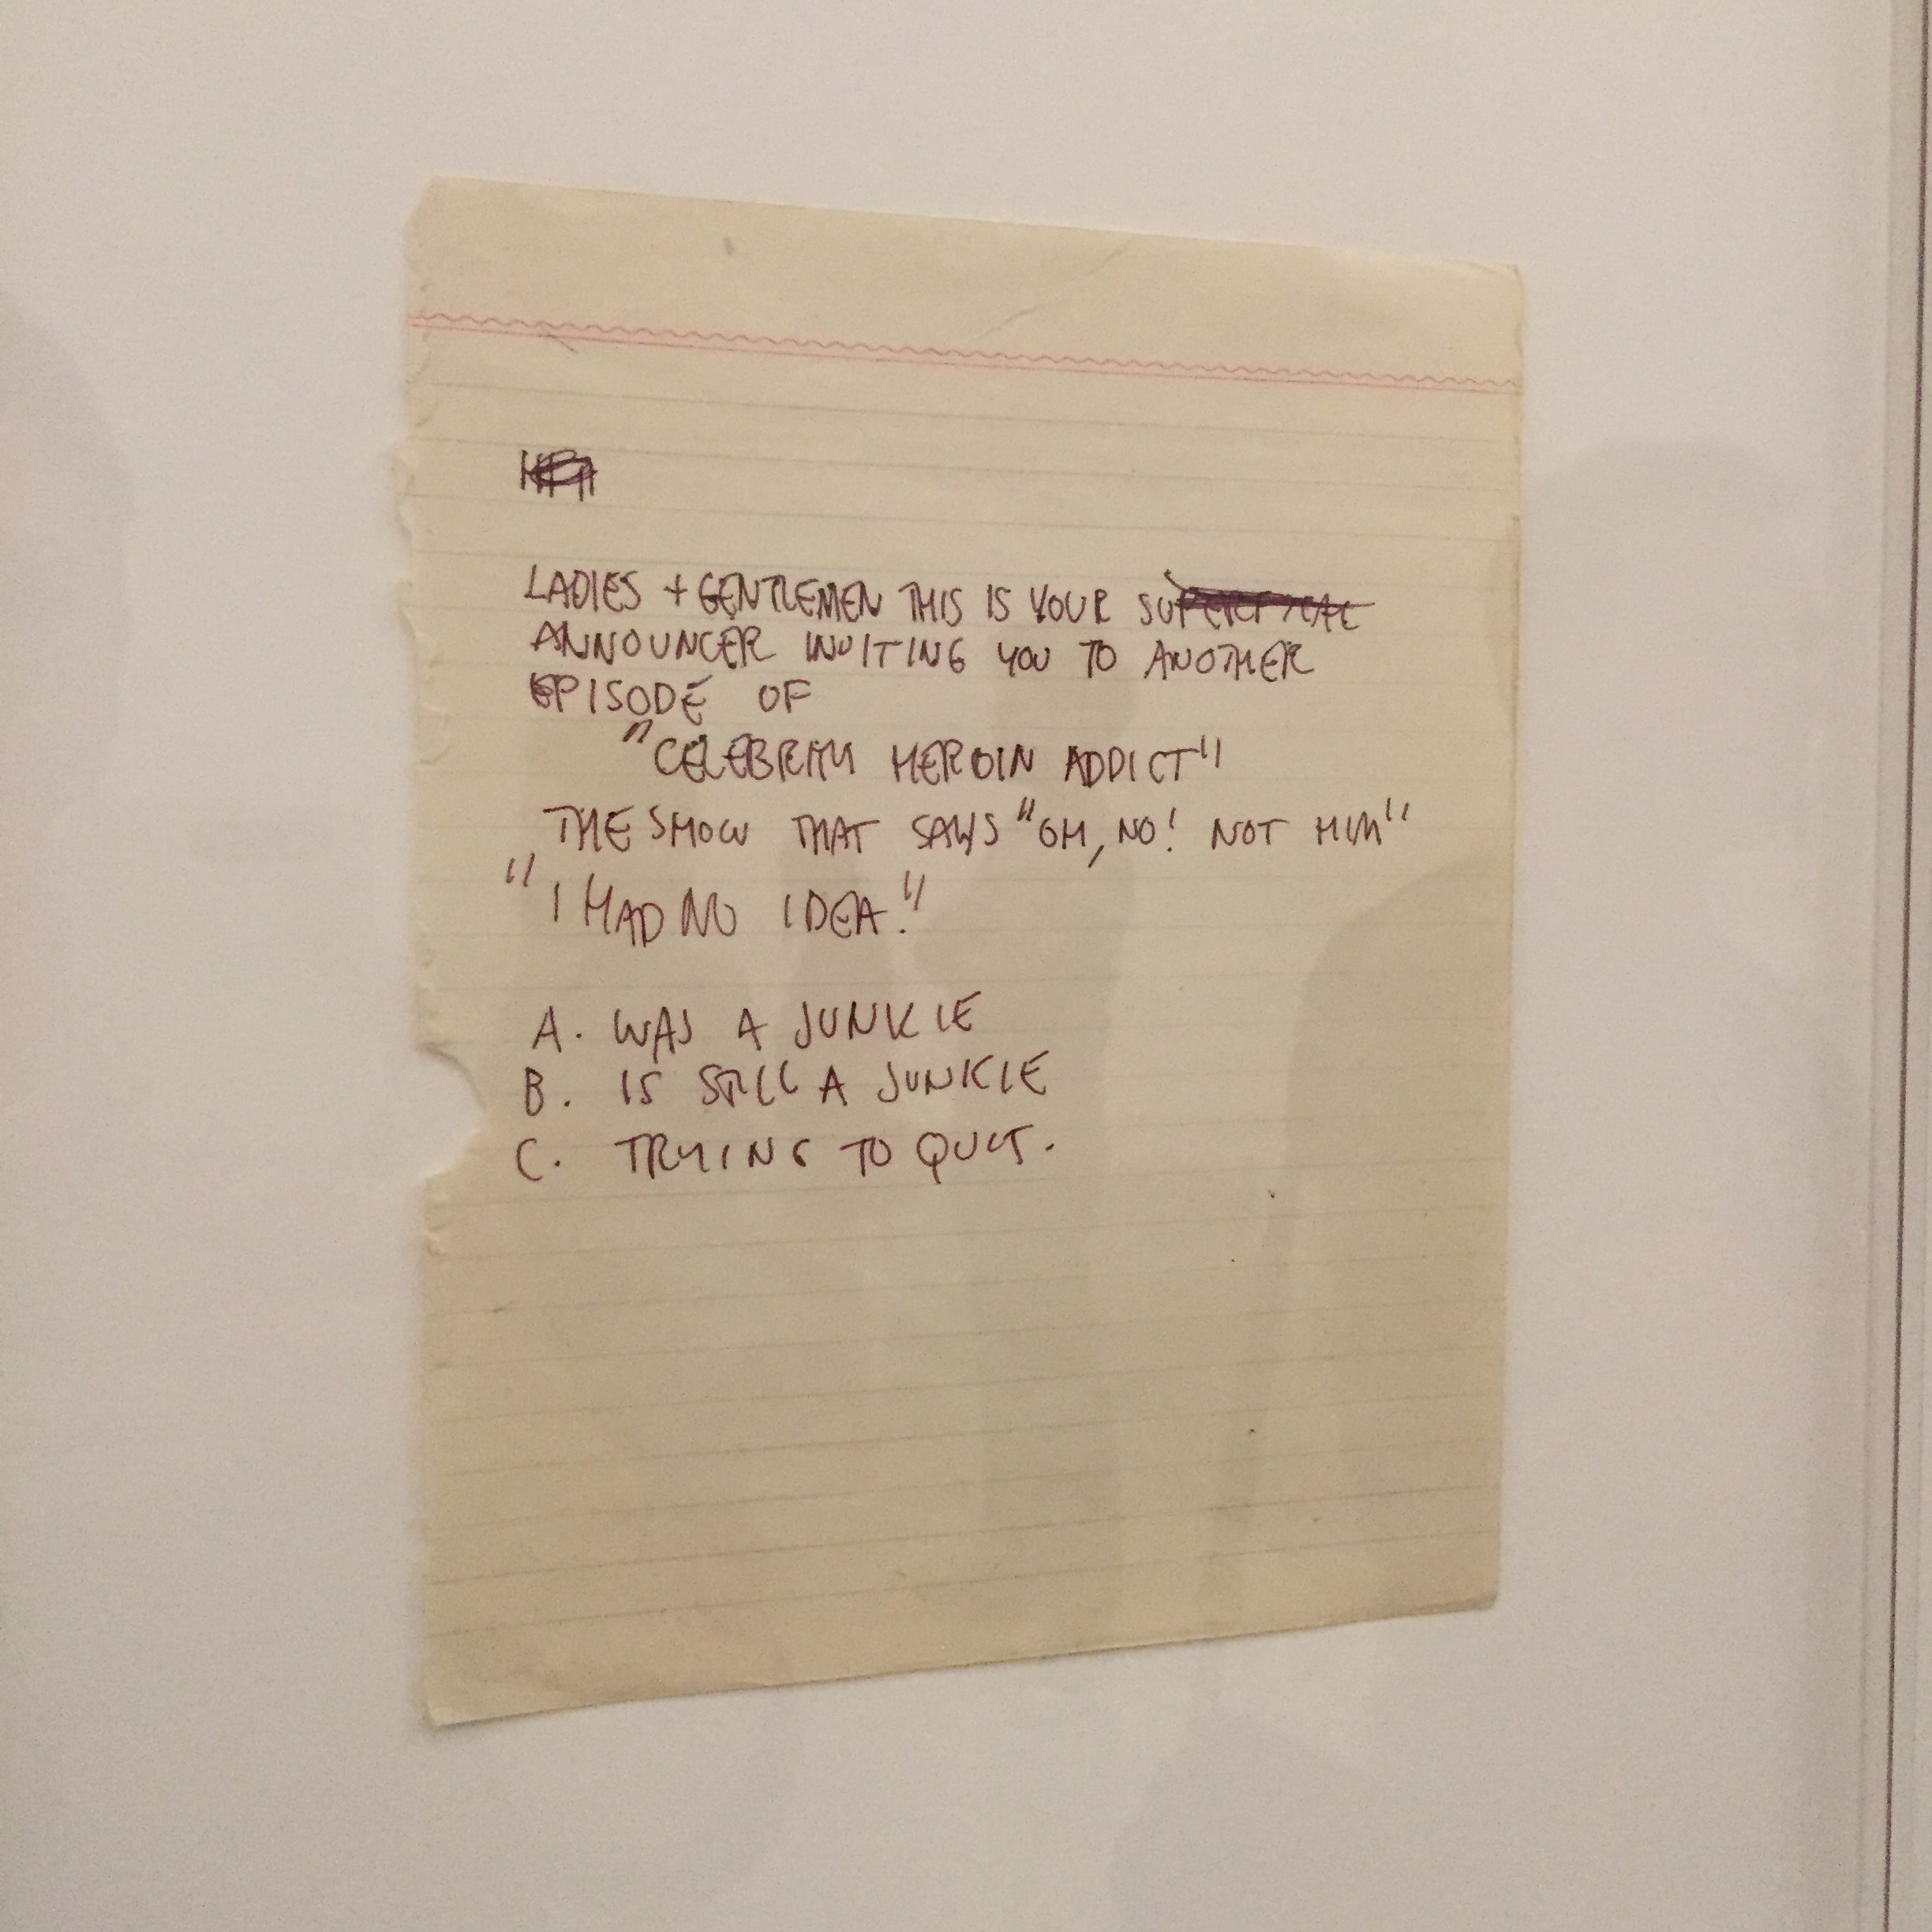 LADIES + GENTLEMEN THIS IS YOUR
ANNOUNCER INVITING YOU TO ANOTHER
EPISODE OF
"CELEBRITY HEROIN ADDICT"
THE SHOW THAT SAYS "OH, NO! NOT HIM"
"I HAD NO IDEA."
A. WAS A JUNKIE
B. IS STILL A JUNKIE
C. TRYING TO QUIT.